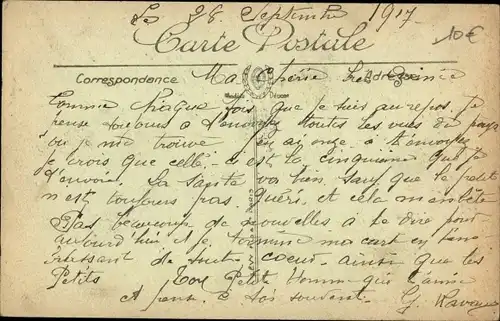 Le 28 Septembre 1917
10€
Carte Postale
Correspondance
Adresse
Ma chérie
Comme chaque fois que je suis au repos je
pense toujours à t'envoyer toutes les vues du pays
ou je me trouve
je crois que celle-ci est la cinquième que je
t'envoie. La santé va bien sauf que le petit
n'est toujours pas guéri et cela m'embête
Pas beaucoup de nouvelles à te dire pour
aujourd'hui je termine ma cart en t'em-
brassant de tout coeur ainsi que les
Petits Ton Petit Homme qui t'aime
et pense à toi souvent. G.